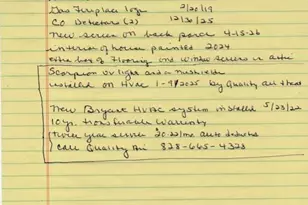 Gas Fireplace logs 2/21/19
CO Detectors (2) 12/20/25
New screen on back porch 4-15-26
interior of house painted 2024
extra box of flooring and window screens in attic
Scorpion UV light and
installed on HVAC 1-9/2025 by Quality Air &
New Bryant HVAC system installed 5/23/22
10 yr. transferable Warranty
twice year service 20.22/mo auto
Call Quality Air 828-665-4323